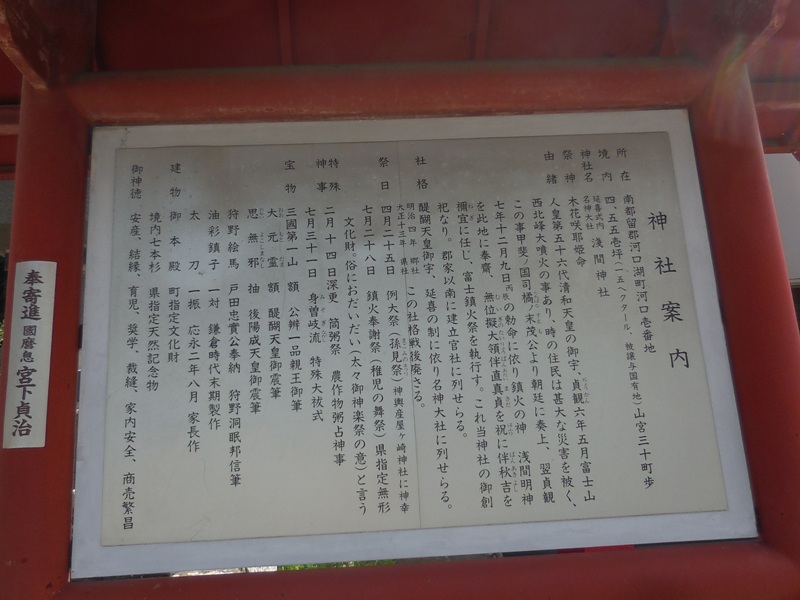 神社案内
所在 南都留郡河口湖町河口壱番地
境内 四、五五壱坪(一、五ヘクタール、被譲与国有地)山宮三十町歩
神社名 延喜式内 名神大社 浅間神社
祭神 木花咲耶姫命
由緒 人皇第五十六代清和天皇の御宇、貞観六年五月富士山
西北峰大噴火の事あり、時の住民は甚大な災害を被く、
この事甲斐ノ国司橘ノ末茂公より朝廷に奏上、翌貞観
七年十二月九日丙辰の勅命に依り鎮火の神 浅間明神
を此地に奉齋、無位擬大領伴直真貞を祝に伴秋吉を
禰宜に任じ、富士鎮火祭を執行す。これ当神社の御創
祀なり。郡家以南に建立官社に列せらる。
醍醐天皇御宇、延喜の制に依り名神大社に列せらる。
社格 明治四年 郷社 大正十三年 県社 この社格戦後廃さる。
祭日 四月二十五日 例大祭(孫見祭)神輿産屋ヶ崎神社に神幸
七月二十八日 鎮火奉謝祭(稚児の舞祭)県指定無形
文化財。俗におだいだい(太々御神楽祭の意)と言う
特殊神事 二月十四日深更 筒粥祭 農作物粥占神事
七月三十一日 身曽岐流 特殊大祓式
宝物 三國第一山 額 公辨一品親王御筆
大元霊 額 醍醐天皇御震筆
思無邪 抽 後陽成天皇御震筆
狩野絵馬 戸田忠實公奉納 狩野洞眠邦信筆
油彩鎮子 一対 鎌倉時代末期製作
太刀 一振 応永二年八月 家長作
建物 御本殿 町指定文化財
境内七本杉 県指定天然記念物
御神徳 安産、結縁、育児、奨学、裁縫、家内安全、商売繁昌
奉寄進 國磨息 宮下貞治